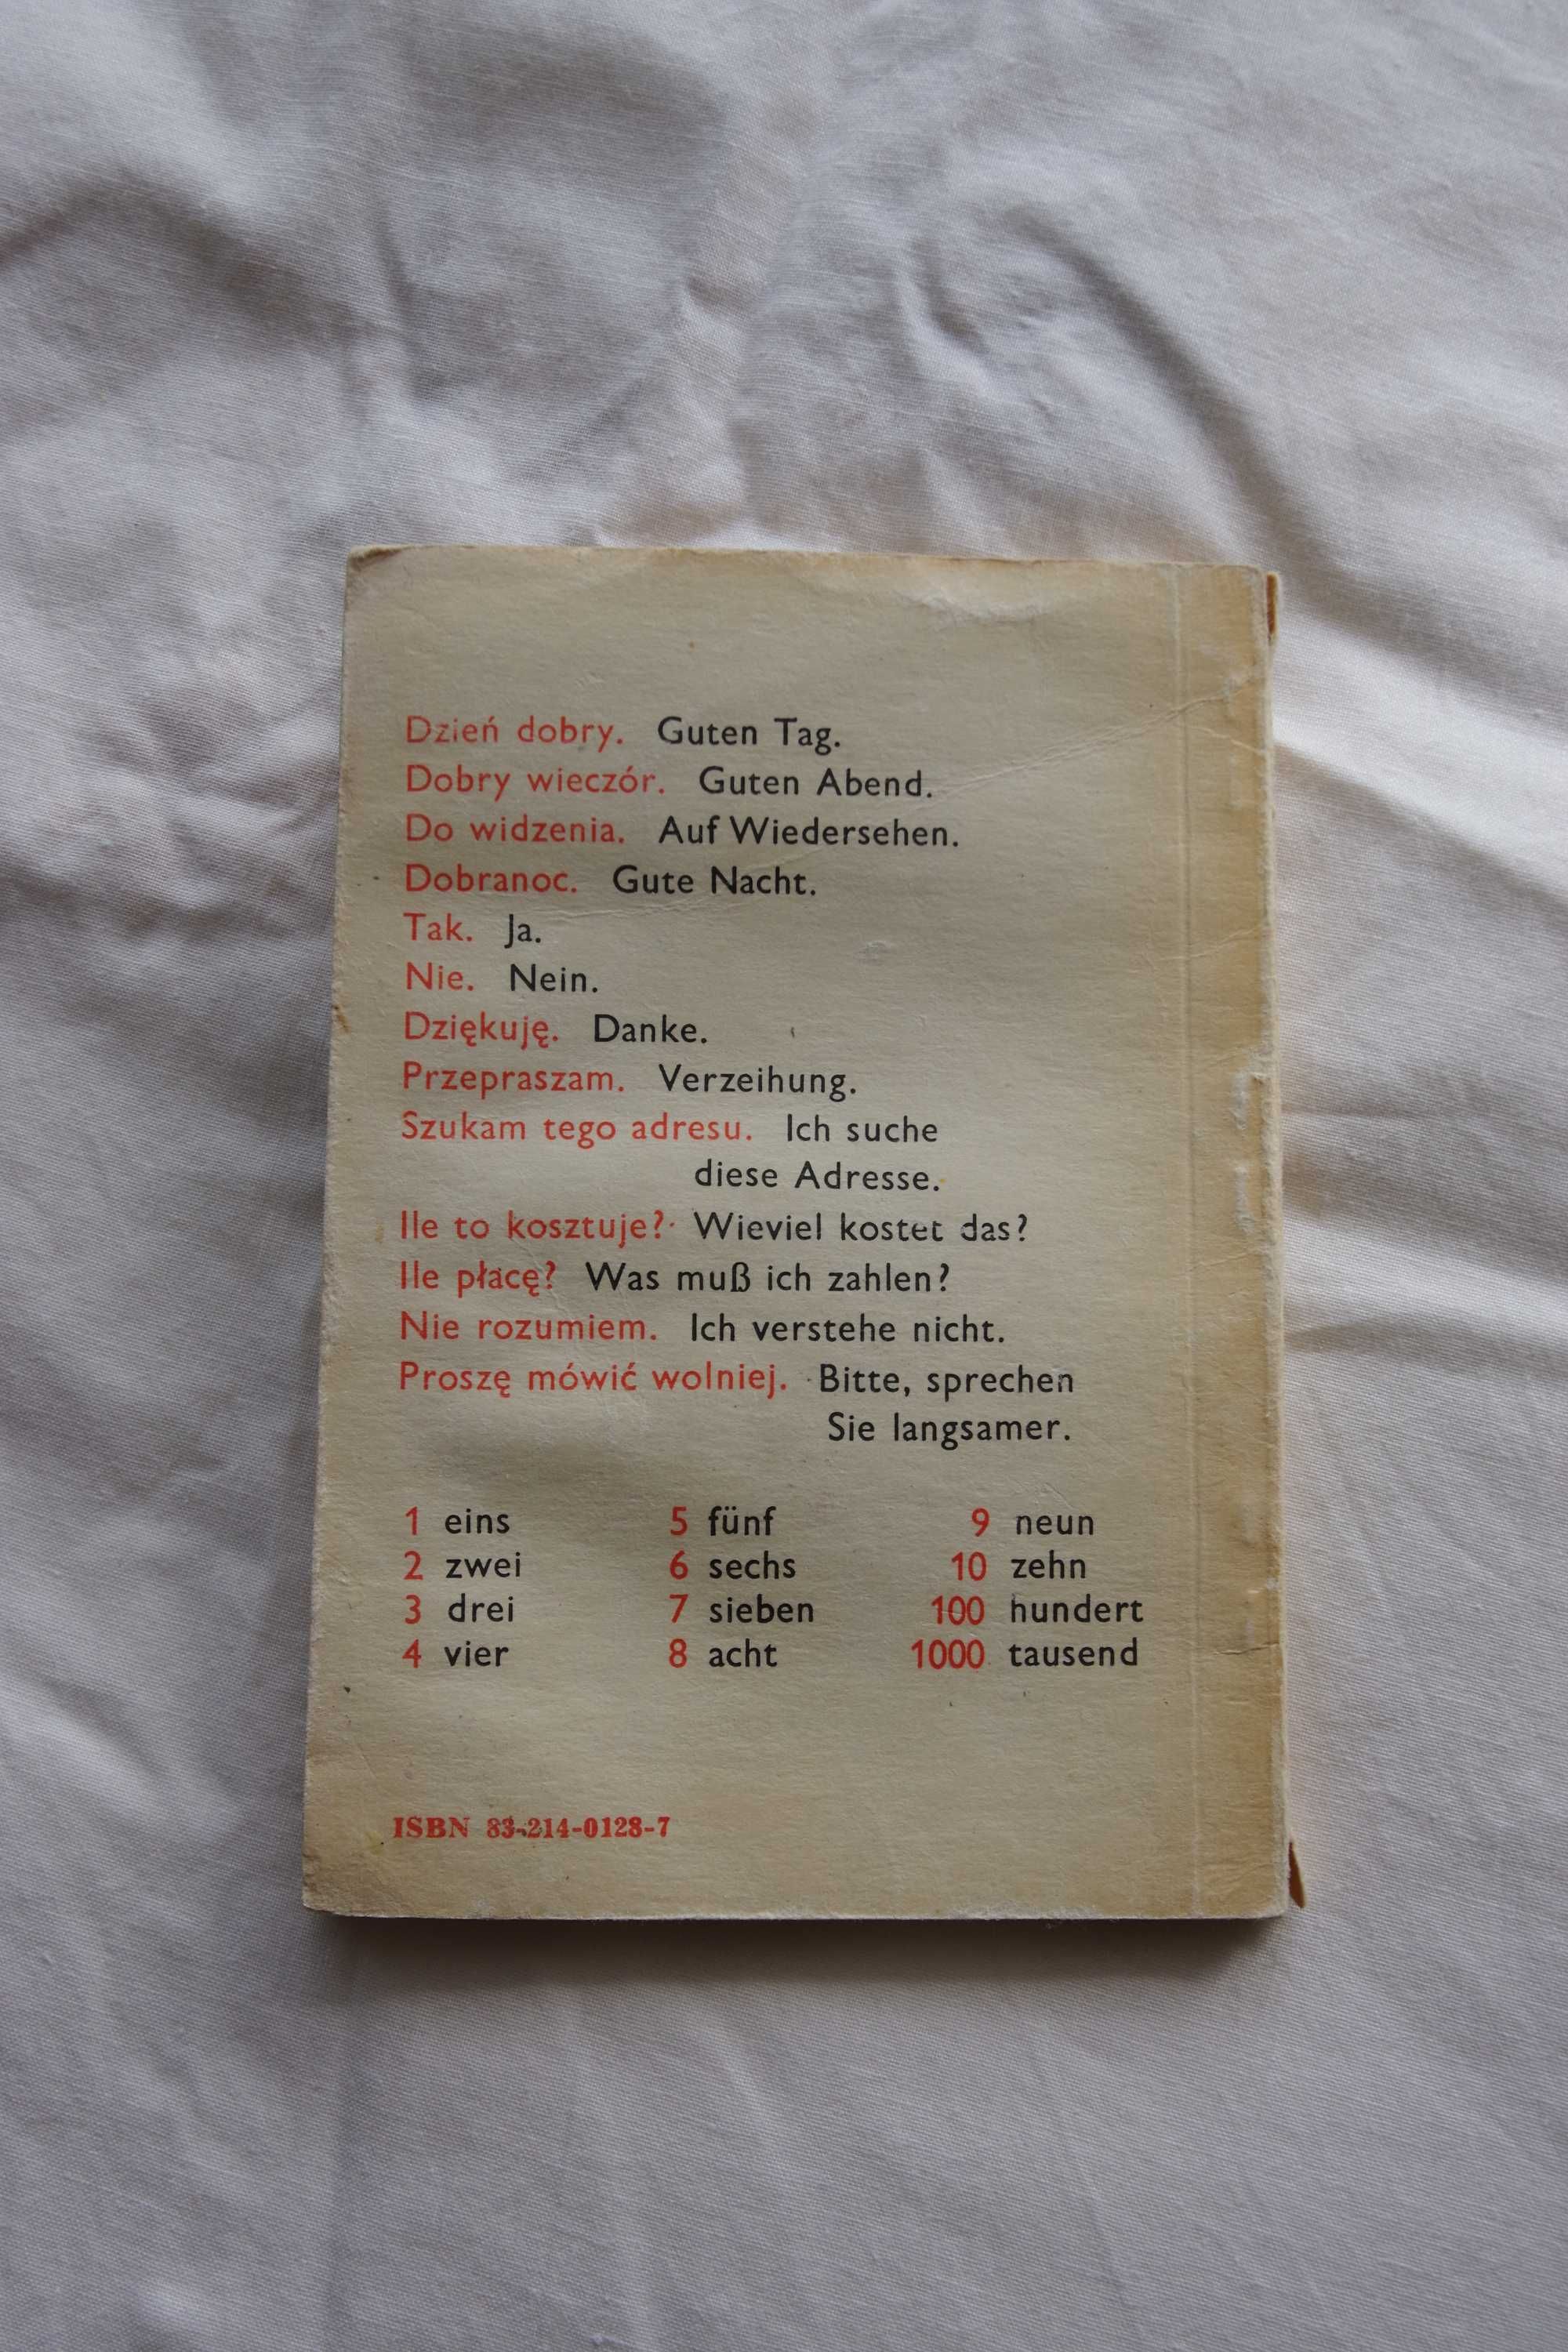 Dzień dobry. Guten Tag.
Dobry wieczór. Guten Abend.
Do widzenia. Auf Wiedersehen.
Dobranoc. Gute Nacht.
Tak. Ja.
Nie. Nein.
Dziękuję. Danke.
Przepraszam. Verzeihung.
Szukam tego adresu. Ich suche
diese Adresse.
Ile to kosztuje? Wieviel kostet das?
Ile płacę? Was muß ich zahlen?
Nie rozumiem. Ich verstehe nicht.
Proszę mówić wolniej. Bitte, sprechen
Sie langsamer.
1 eins 5 fünf 9 neun
2 zwei 6 sechs 10 zehn
3 drei 7 sieben 100 hundert
4 vier 8 acht 1000 tausend
ISBN 83-214-0128-7